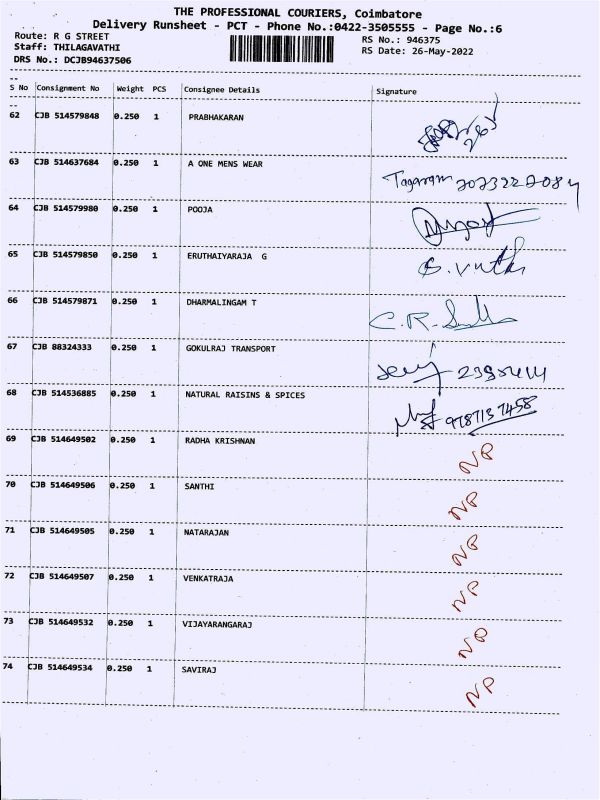 THE PROFESSIONAL COURIERS, Coimbatore
Delivery Runsheet - PCT - Phone No.:0422-3505555 - Page No.:6
Route: R G STREET
RS No.: 946375
Staff: THILAGAVATHI
RS Date: 26-May-2022
DRS No.: DCJB94637506
S No Consignment No Weight PCS Consignee Details Signature
62 CJB 514579848 0.250 1 PRABHAKARAN
63 CJB 514637684 0.250 1 A ONE MENS WEAR
64 CJB 514579980 0.250 1 POOJA
65 CJB 514579850 0.250 1 ERUTHAIYARAJA G
66 CJB 514579871 0.250 1 DHARMALINGAM T C.R.
67 CJB 88324333 0.250 1 GOKULRAJ TRANSPORT
68 CJB 514536885 0.250 1 NATURAL RAISINS & SPICES 9787137458
69 CJB 514649502 0.250 1 RADHA KRISHNAN NP
70 CJB 514649506 0.250 1 SANTHI NP
71 CJB 514649505 0.250 1 NATARAJAN NP
72 CJB 514649507 0.250 1 VENKATRAJA NP
73 CJB 514649532 0.250 1 VIJAYARANGARAJ NP
74 CJB 514649534 0.250 1 SAVIRAJ NP